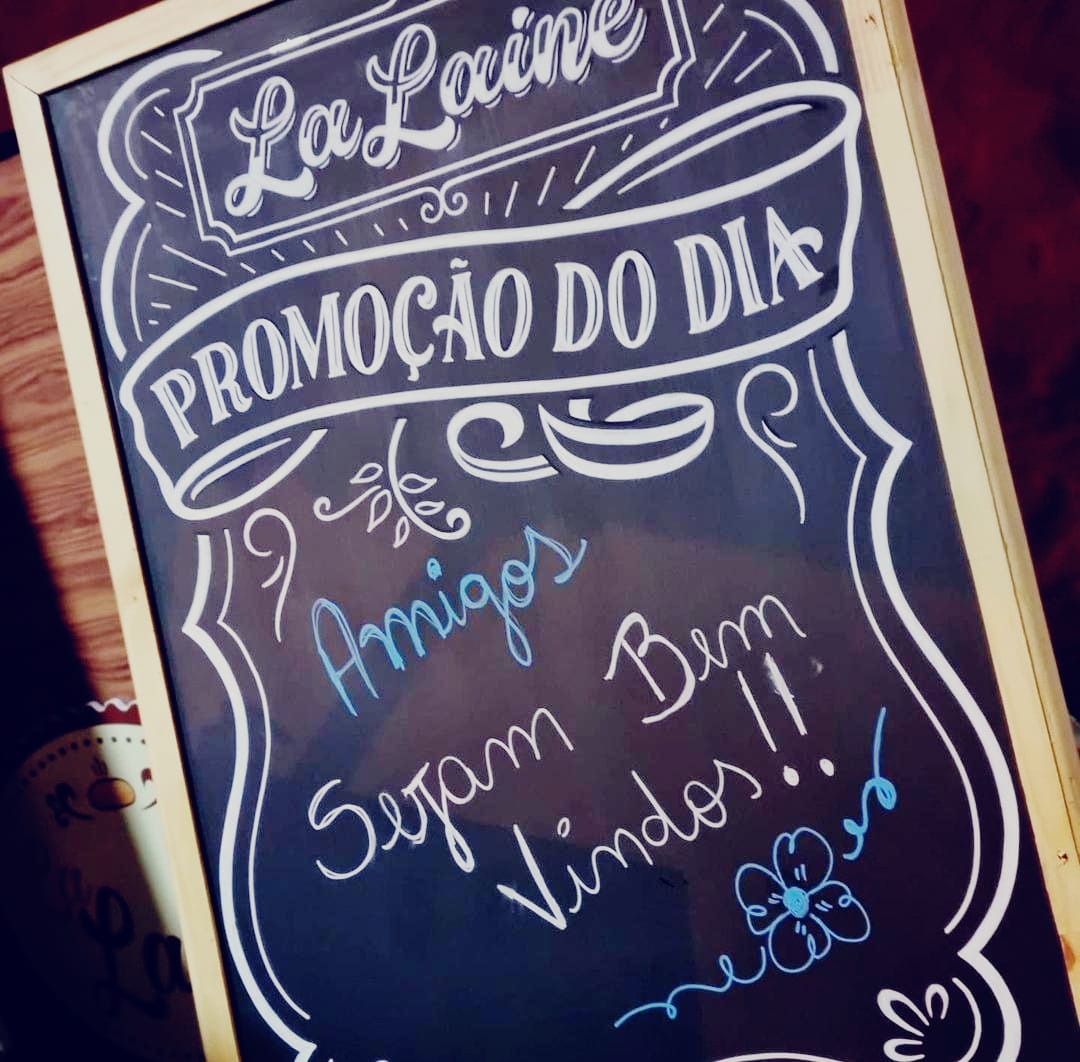 La Laine
PROMOÇÃO DO DIA
Amigos
Sejam Bem
Vindos!!
La